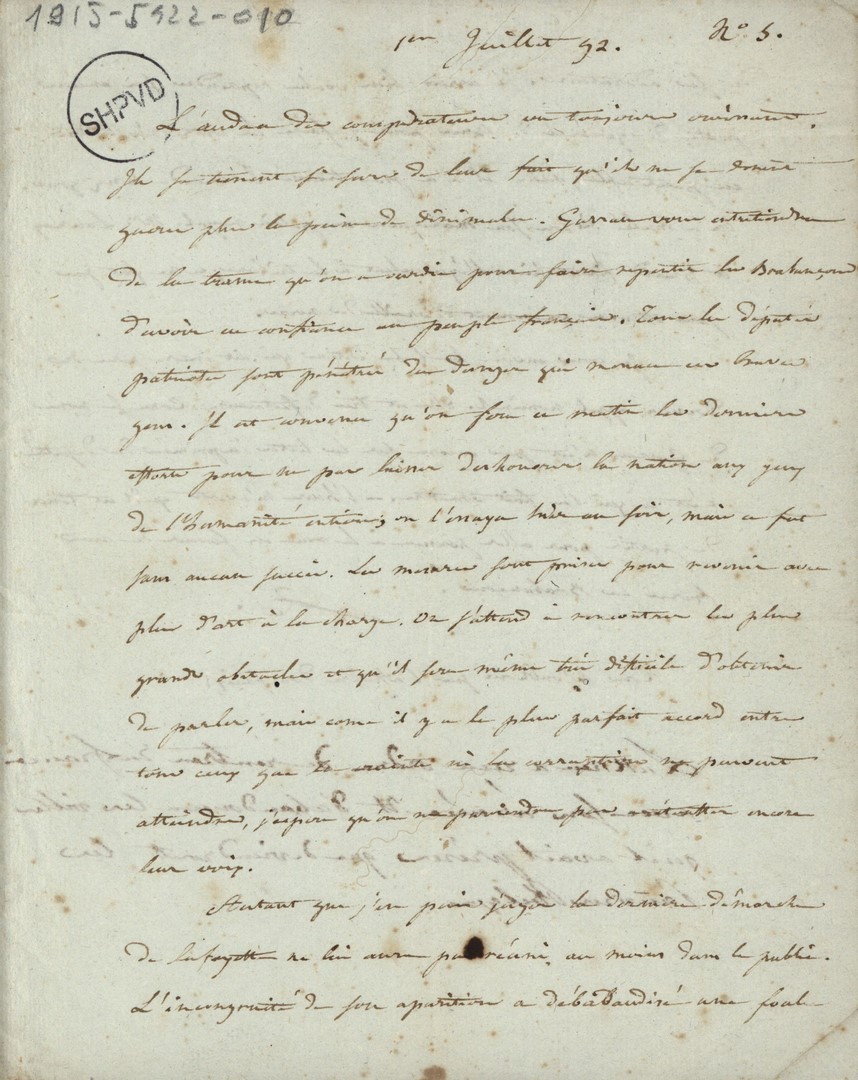 1915-5922-010
1er Juillet 92. N° 5.
SHPVD
L'audace des conspirateurs va toujours croissant.
Ils se tienent si surs de leur fait qu'ils ne se donnent
guère plus la peine de dissimuler. Garrau vous entretiendra
de la trame qu'on a ourdie pour faire repentir les Brabançons
d'avoir eu confiance au peuple français. Tous les députés
patriotes sont pénétrés du danger qui menace ces braves
gens. Il est convenu qu'on fera ce matin les derniers
efforts pour ne pas laisser deshonorer la nation aux yeux
de l'humanité entière; on l'essaya hier au soir, mais ce fut
sans aucun succès. Les mesures sont prises pour revenir avec
plus d'art à la charge. On s'attend à rencontrer les plus
grands obstacles et qu'il sera même très difficile d'obtenir
de parler, mais come il y a le plus parfait accord entre
tous ceux que la crainte ni la corruption ne peuvent
atteindre, j'espère qu'on ne parviendra pas à étouffer encore
leur voix.
Autant que j'en puis juger la dernière démarche
de lafayette ne lui aura pas réussi, au moins dans le public.
L'incongruité de son aparition a débabaudisé une foule